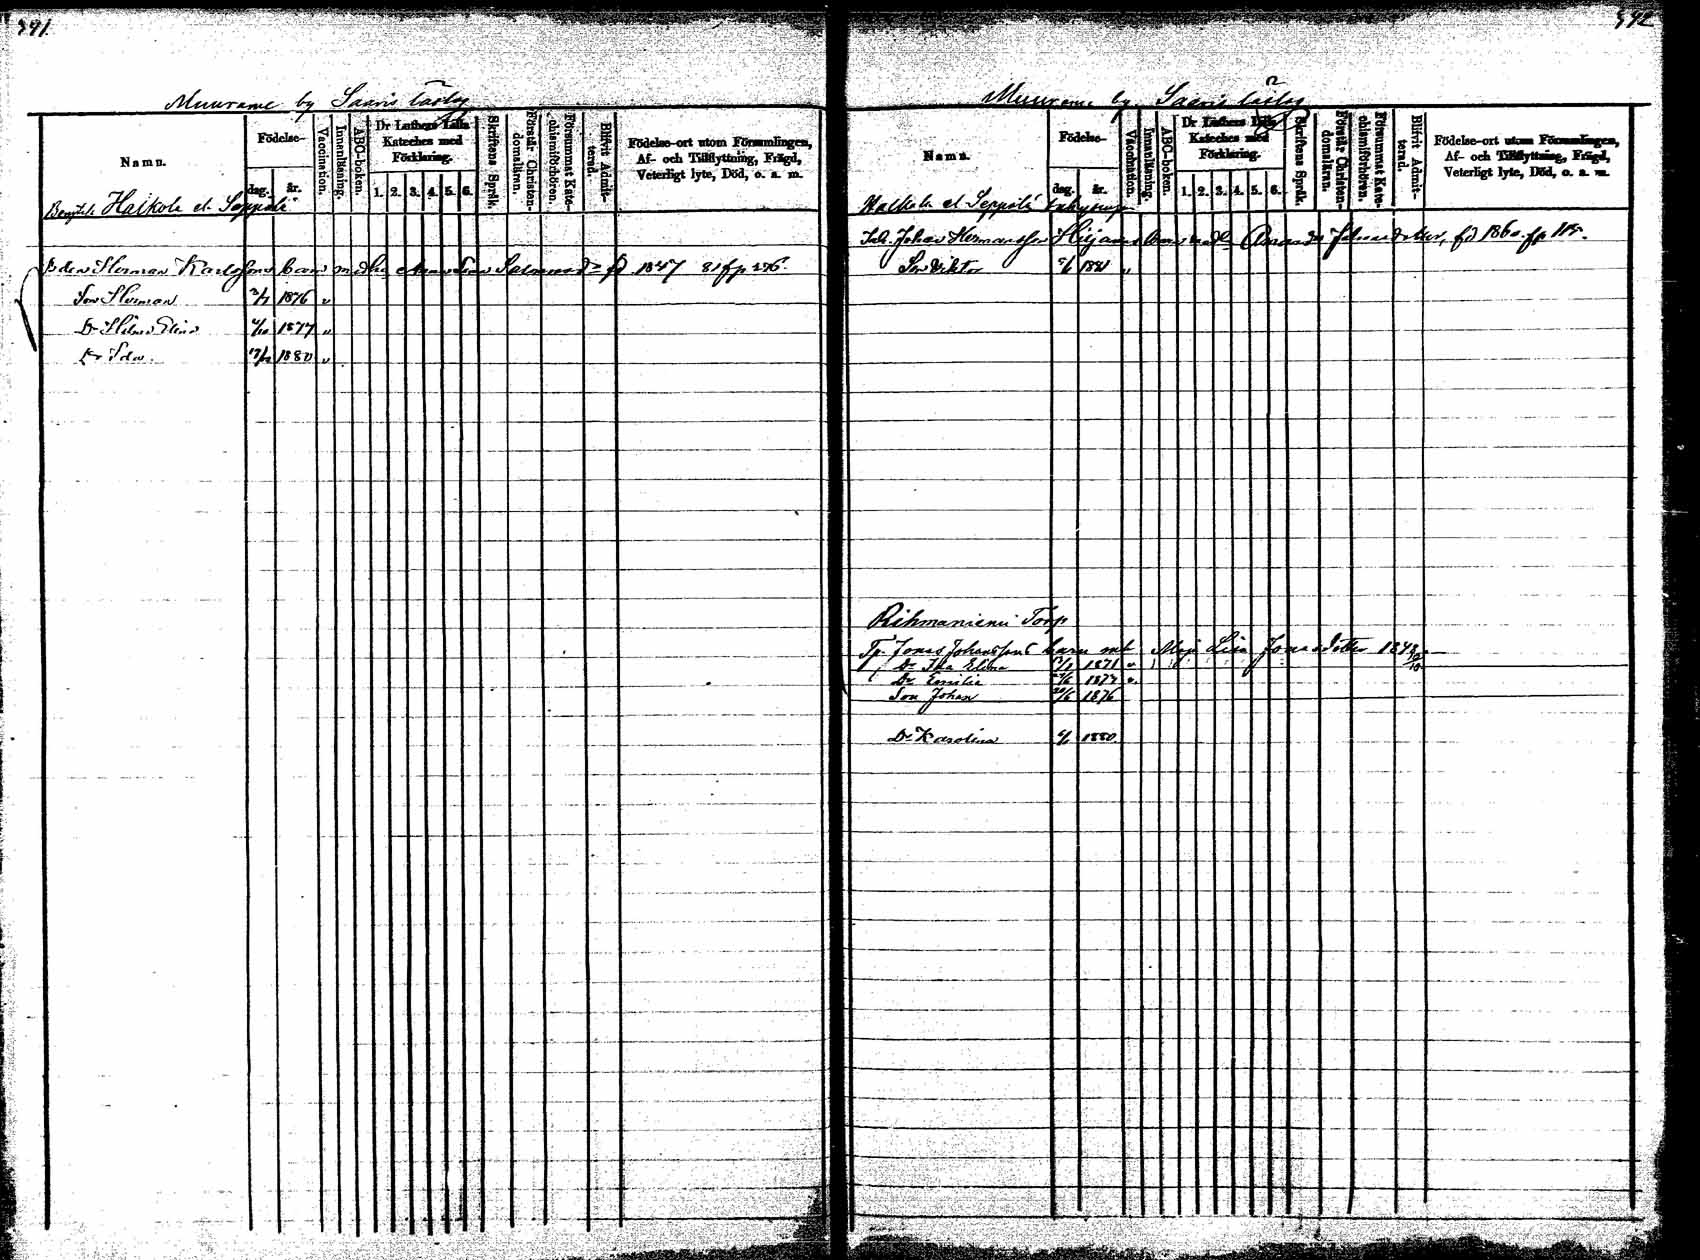 391
Muurame by Saaris Läslag
Namn.
Födelse-
dag.
år.
Vaccination.
Innanläsning.
ABC-boken.
Dr Luthers Lilla
Kateches med
Förklaring.
1. 2. 3. 4. 5. 6.
Skriftens Språk.
Förstår Christen-
domsläran.
Försummat Kate-
chismiförhören.
Blifvit Admit-
terad.
Födelse-ort utom Församlingen,
Af- och Tillflyttning, Frägd,
Veterligt lyte, Död, o. s. m.
Halkola et Seppälä
Bden Herman Karlssons barn med hu 1847 81 fp 296.
Son Herman 1876 "
Dr Hilma Elina 1877 "
Dr Ida 17/12 1880 "
392
Muurame by Saaris Läslag
Namn.
Födelse-
dag.
år.
Vaccination.
Innanläsning.
ABC-boken.
Dr Luthers Lilla
Kateches med
Förklaring.
1. 2. 3. 4. 5. 6.
Skriftens Språk.
Förstår Christen-
domsläran.
Försummat Kate-
chismiförhören.
Blifvit Admit-
terad.
Födelse-ort utom Församlingen,
Af- och Tillflyttning, Frägd,
Veterligt lyte, Död, o. s. m.
Halkola et Seppälä
Inh. Johan Hermansson barn med hu Amanda fd 1860. fp
Son Viktor 1881 "
Rihmaniemi Torp
Tp. Jonas Johanssons barn mt Maja Lisa Jonasdotter 1843
Dr Ida Elina 1871 "
Dr Emilia "
Son Johan 1876
Dr Karolina 1880.